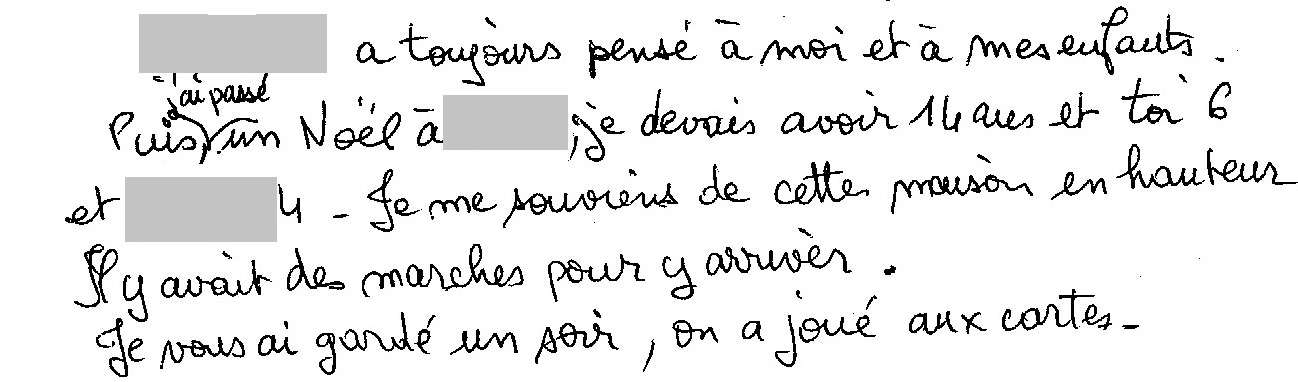 a toujours pensé à moi et à mes enfants.
j'ai passé
Puis, un Noël à ; je devais avoir 14 ans et toi 6
et 4 - Je me souviens de cette maison en hauteur
Il y avait des marches pour y arriver.
Je vous ai gardé un soir, on a joué aux cartes -